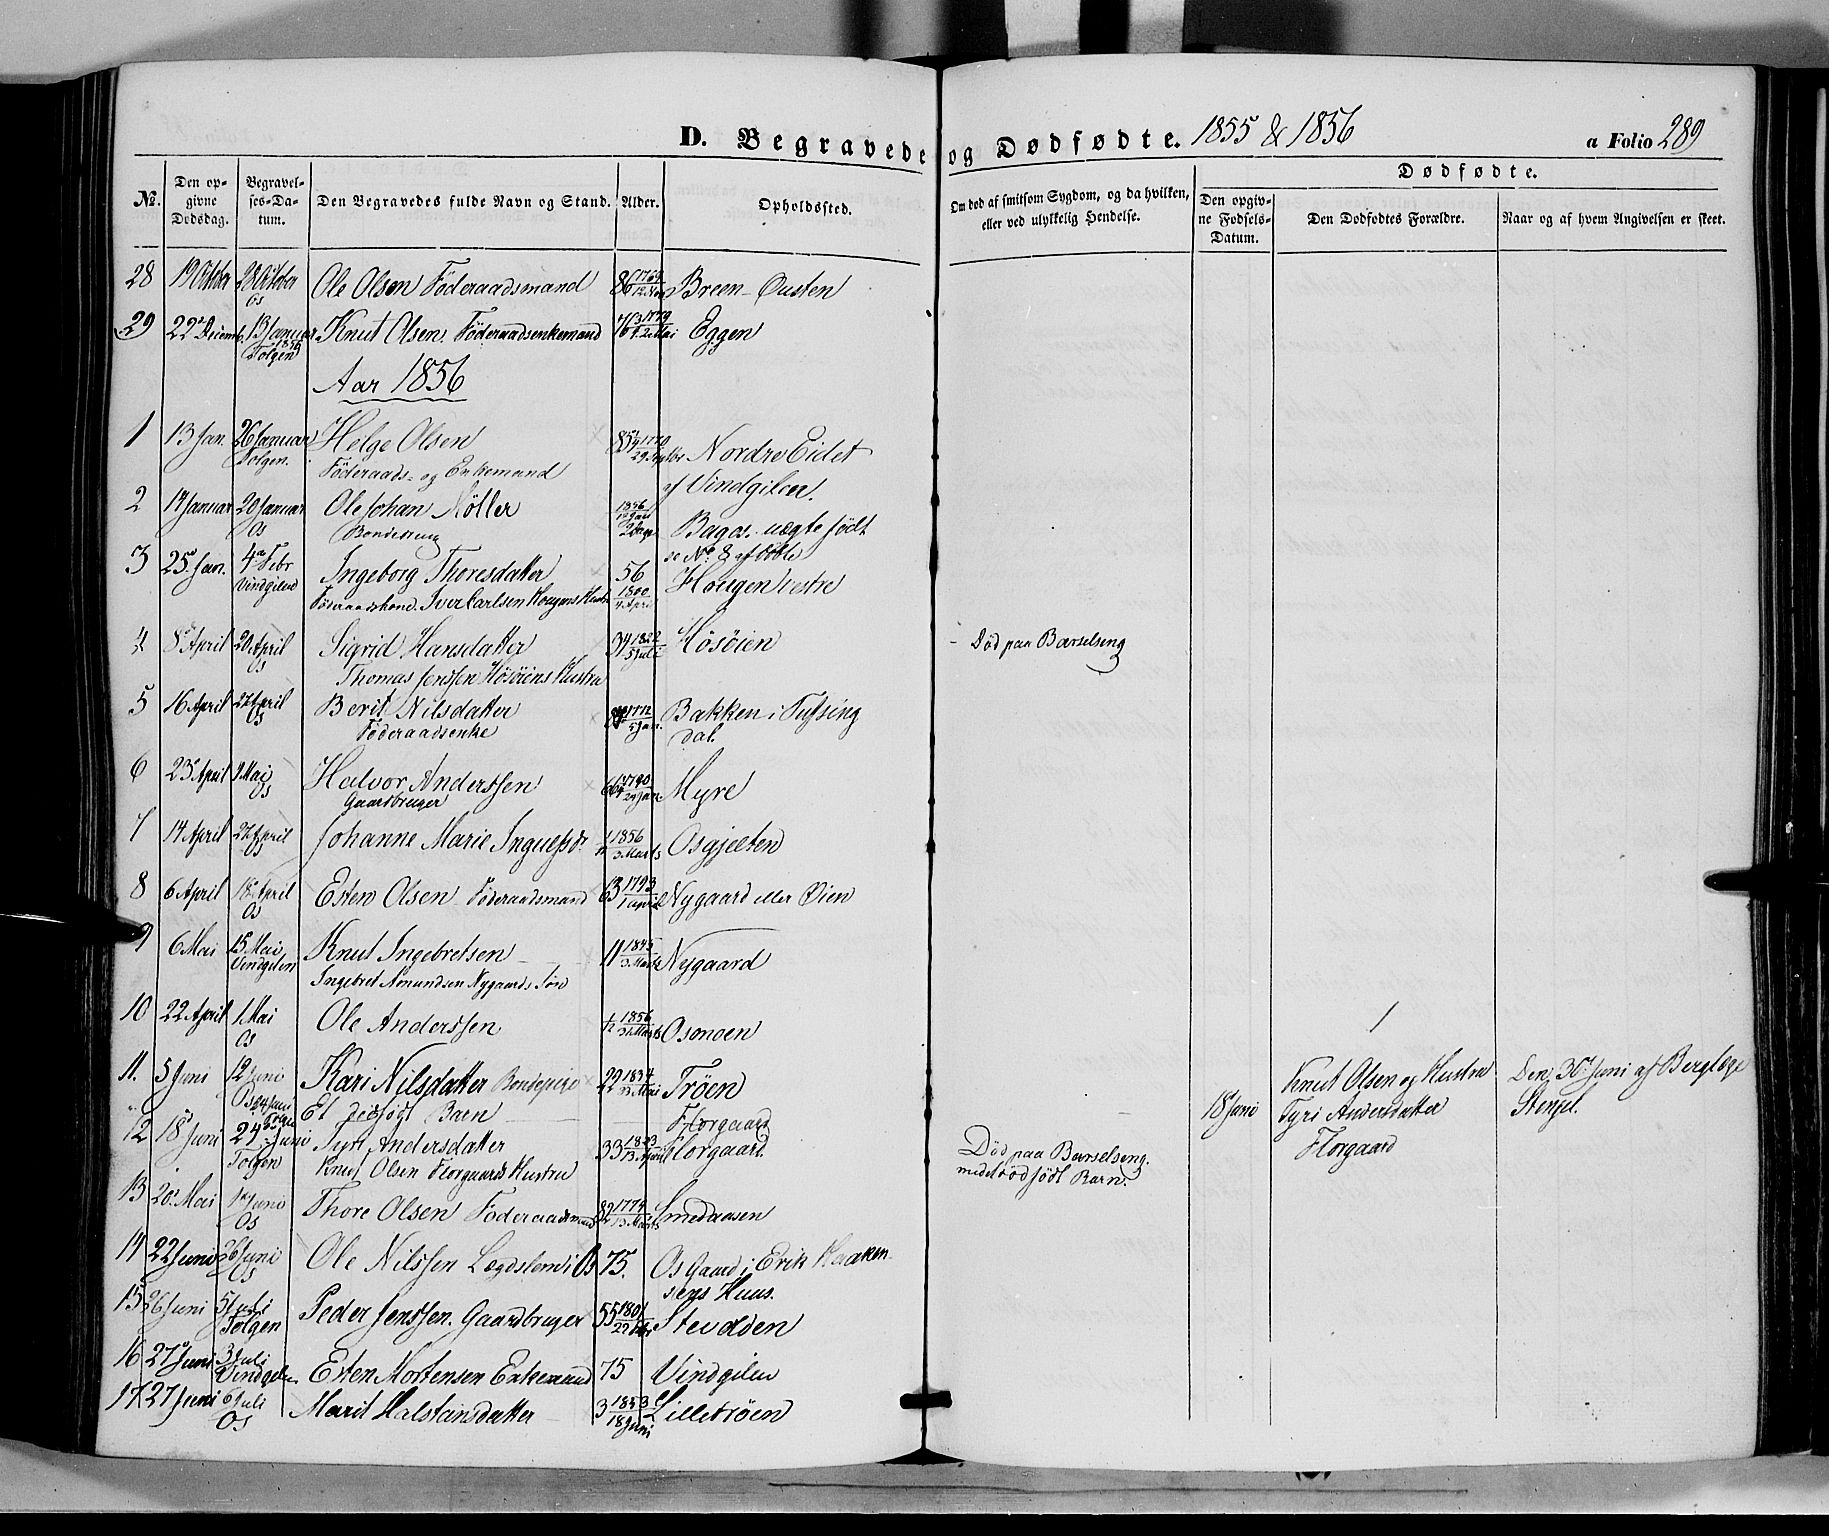 D. Begravede og Dødfødte. 1855 & 1856 a Folio 289
Dødfødte.
No. Den opgivne Dødsdag. Begravelses-Datum. Den Begravedes fulde Navn og Stand. Alder. Opholdssted. Om død af smitsom Sygdom, og da hvilken, eller ved ulykkelig Hendelse. Den opgivne Fødsels-Datum. Den Dødfødtes Forældre. Naar og af hvem Angivelsen er skeet.
28 19 October 28 October Ole Olsen Föderaadsmand 86 1769 Breen-Ousten
Os 12 Nov
29 22 Decemb. 13 Januar Knut Olsen Föderaadsenkemand 1779 Eggen
1856 Tolgen 12 Mai
Aar 1856
1 13 Jan. 26 Januar Helge Olsen 85 1770 Nordre Eidet
Tolgen. Föderaads- og Enkemand 29 Septbr af Vindgilen.
2 14 Januar 20 Januar Ole Johan Möller 1856 12 Jan 2 Dage
Os Bondedreng Bagos. uægte født
se No. 8 af döbte
3 25 Jan. 4 Febr Ingeborg Thoresdatter 56 Hougen vestre
Vindgilen Föderaadskond. Iver Carlsen Hougens Hustru 1800 4 April
4 8 April 20 April Sigrid Hansdatter 34 1822 Høsøien - Död paa Barselseng
Os Thomas Jenssen Høsøiens Hustru 5 Juli
5 16 April 27 April Berit Nilsdatter 1772 Bakken i Tufsing
Os Föderaadsenke 5 Jan. dal.
6 23 April 9 Mai Halvor Anderssen 66 1790 Myre
Os Gaardbruger 24 Jan
7 14 April 27 April Johanne Marie Inguelsdr 1856 Osgjelten
Os 3 Marts
8 6 April 18 April Esten Olsen Föderaadsmand 63 1793 Nygaard eller Øien
Os 1 April
9 6 Mai 15 Mai Knut Ingebretsen 11 1845 Nygaard
Vindgilen Ingebret Amundsen Nygaards Søn 3 Marts
10 22 April 1 Mai Ole Anderssen 1/12 1856 Osmoen
Os 31 Marts
1
11. 5 Juni 12 Juni Kari Nilsdatter Bondepige 22 1834 Trøen
Os 13 Mai
" 24 Juni Et dødfødt Barn Florgaard 18 Juni Knut Olsen og Hustru Den 30 Juni af Berglæge
Tyri Andersdatter Stenzel.
Florgaard
12 18 Juni 24 Juni Tyri Andersdatter 33 1823 Florgaard. Död paa Barselseng
Tolgen Knut Olsen Florgaards Hustru 13 April med et död født Barn.
13 20 Mai 1 Juni Thore Olsen Föderaadsmand 82 1774 Smedaasen
Os 13 Marts
14 22 Juni 26 Juni Ole Nilssen Lægdslem i Os 75. Os Gaard i Erik Haaken-
Os sens Huus.
15 26 Juni 5 Juli Peder Jenssen. Gaardbruger 55 1801 Steudden
Tolgen
16 27 Juni 3 Juli Esten Mortensen Enkemand 75 Vindgilen
Vindgilen
17. 27 Juni 6 Juli Marit Halstainsdatter 3 1853 Lilletrøen
Os 18 Juni